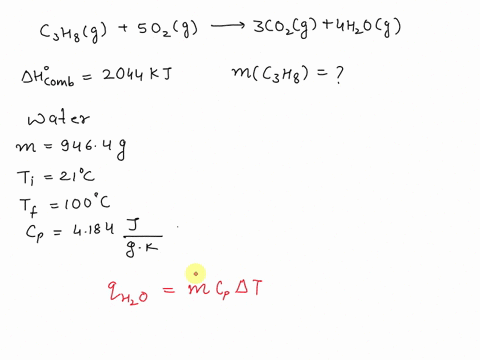 C₃H₈(g) + 5O₂(g) ⟶ 3CO₂(g) + 4H₂O(g)
ΔH°comb = 2044 KJ m(C₃H₈) = ?
Water
m = 946.4 g
Ti = 21°C
Tf = 100°C
Cp = 4.184 J/g·K
qH₂O = m Cp ΔT